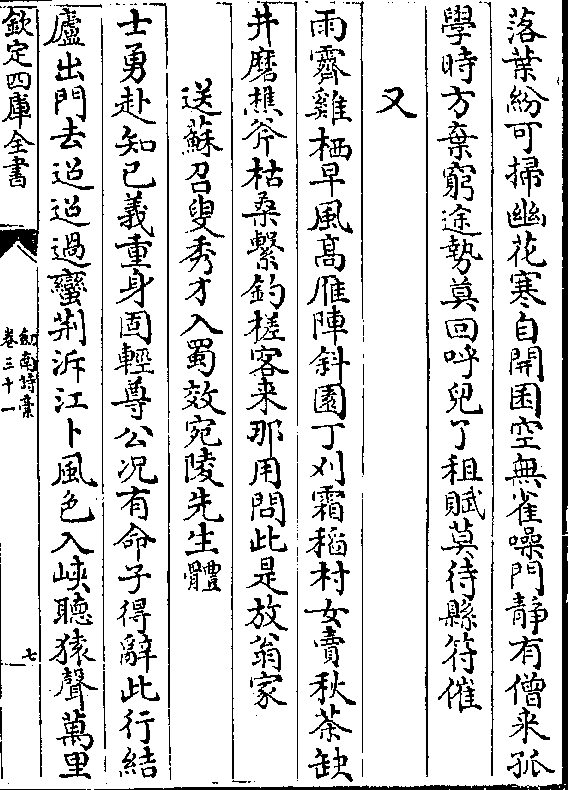 落葉紛可掃幽花寒自開囷空無雀噪門靜有僧来孤
學時方棄窮途勢莫回呼兒了租賦莫待縣符催
又
雨霽雞栖早風髙雁陣斜園丁刈霜稻村女賣秋茶缺
井磨樵斧枯桑繫釣槎客来那用問此是放翁家
送蘇召叟秀才入蜀效宛陵先生體
士勇赴知已義重身固輕尊公况有命子得辭此行結
廬出門去迢迢過蠻荆泝江卜風色入峽聽猿聲萬里
欽定四庫全書
劍南詩藁
卷三十一
七